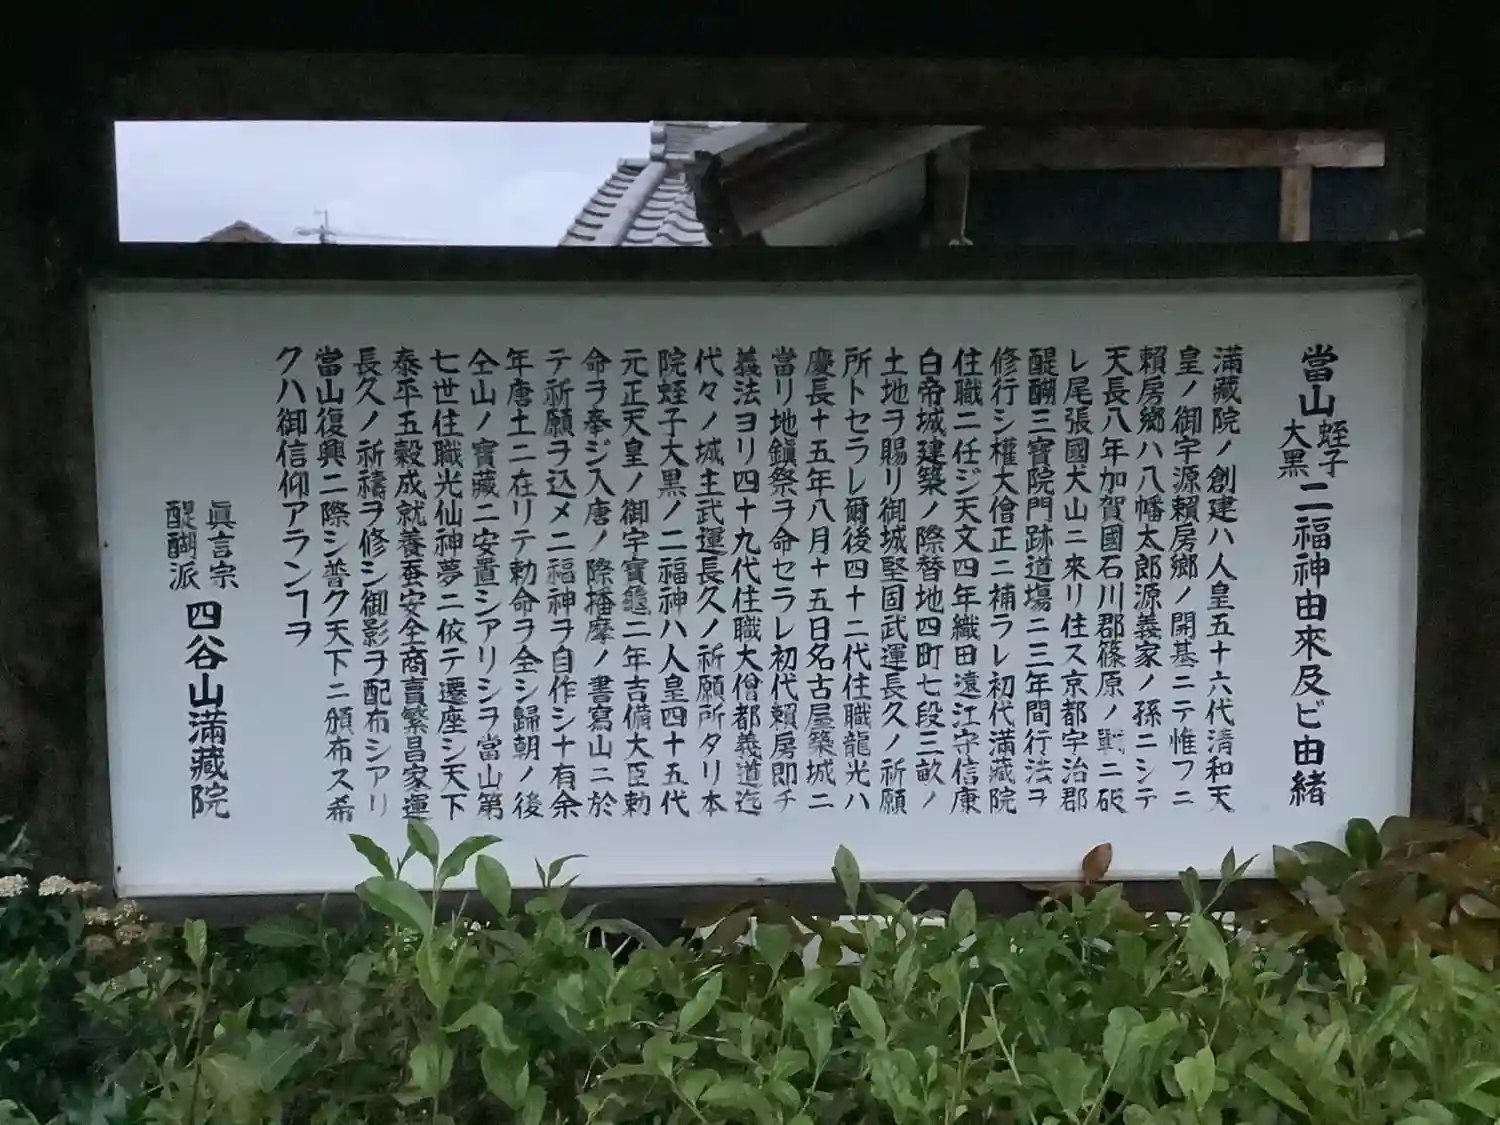 當山蛭子大黑二福神由來及ビ由緒
滿藏院ノ創建ハ人皇五十六代清和天
皇ノ御宇源賴房鄉ノ開基ニテ惟フニ
賴房鄉ハ八幡太郎源義家ノ孫ニシテ
天長八年加賀國石川郡篠原ノ戰ニ破
レ尾張國犬山ニ來リ住ス京都宇治郡
醍醐三寶院門跡道場ニ三年間行法ヲ
修行シ權大僧正ニ補ラレ初代滿藏院
住職ニ任ジ天文四年織田遠江守信康
白帝城建築ノ際替地四町七段三畝ノ
土地ヲ賜リ御城堅固武運長久ノ祈願
所トセラレ爾後四十二代住職龍光ハ
慶長十五年八月十五日名古屋築城ニ
當リ地鎭祭ヲ命セラレ初代賴房即チ
義法ヨリ四十九代住職大僧都義道迄
代々ノ城主武運長久ノ祈願所タリ本
院蛭子大黒ノ二福神ハ人皇四十五代
元正天皇ノ御宇寶龜二年吉備大臣勅
命ヲ奉ジ入唐ノ際播摩ノ書寫山ニ於
テ祈願ヲ込メ二福神ヲ自作シ十有余
年唐土ニ在リテ勅命ヲ全シ歸朝ノ後
仝山ノ寶藏ニ安置シアリシヲ當山第
七世住職光仙神夢ニ依テ遷座シ天下
泰平五穀成就養蚕安全商賣繁昌家運
長久ノ祈禱ヲ修シ御影ヲ配布シアリ
當山復興ニ際シ普ク天下ニ頒布ス希
クハ御信仰アランコヲ
眞言宗
醍醐派
四谷山滿藏院